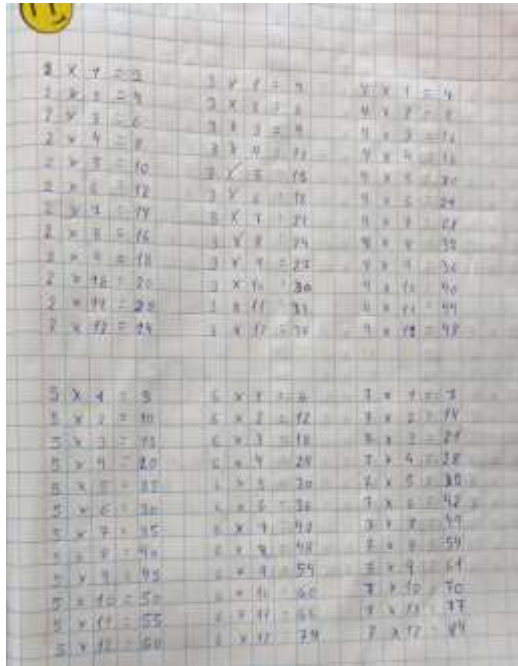 2 x 1 = 2
2 x 2 = 4
2 x 3 = 6
2 x 4 = 8
2 x 5 = 10
2 x 6 = 12
2 x 7 = 14
2 x 8 = 16
2 x 9 = 18
2 x 10 = 20
2 x 11 = 22
2 x 12 = 24
3 x 2 = 6
3 x 3 = 9
3 x 4 = 12
3 x 5 = 15
3 x 6 = 18
3 x 7 = 21
3 x 8 = 24
3 x 9 = 27
3 x 10 = 30
3 x 11 = 33
3 x 12 = 36
4 x 1 = 4
4 x 2 = 8
4 x 3 = 12
4 x 4 = 16
4 x 5 = 20
4 x 6 = 24
4 x 7 = 28
4 x 8 = 32
4 x 9 = 36
4 x 10 = 40
4 x 11 = 44
4 x 12 = 48
5 x 1 = 5
5 x 2 = 10
5 x 3 = 15
5 x 4 = 20
5 x 5 = 25
5 x 6 = 30
5 x 7 = 35
5 x 8 = 40
5 x 9 = 45
5 x 10 = 50
5 x 11 = 55
5 x 12 = 60
6 x 1 = 6
6 x 2 = 12
6 x 3 = 18
6 x 4 = 24
6 x 5 = 30
6 x 6 = 36
6 x 7 = 42
6 x 8 = 48
6 x 9 = 54
6 x 10 = 60
6 x 11 = 66
6 x 12 =
7 x 1 = 7
7 x 2 = 14
7 x 3 = 21
7 x 4 = 28
7 x 5 = 35
7 x 6 = 42
7 x 8 =
7 x 9 =
7 x 10 = 70
7 x 11 = 77
7 x 12 = 84